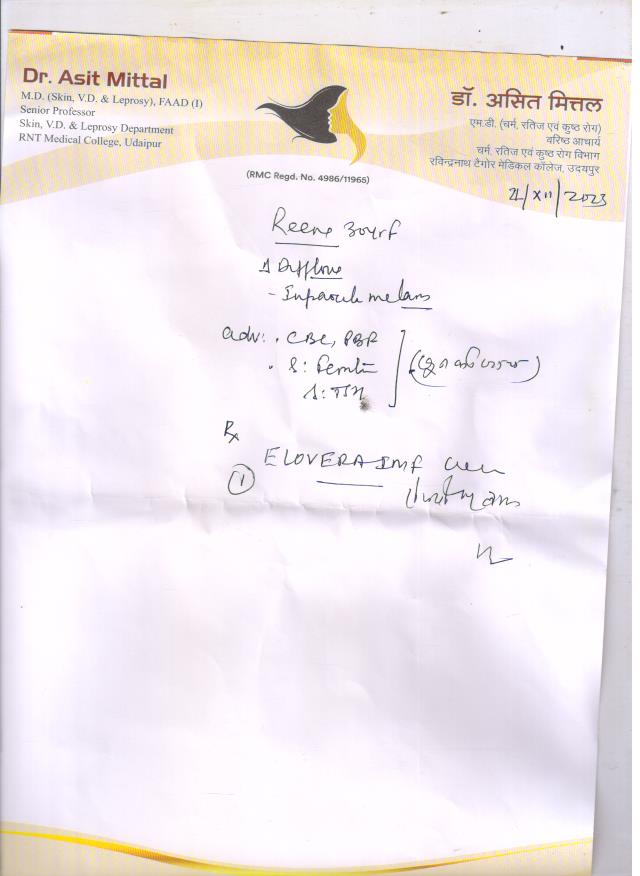 Dr. Asit Mittal
M.D. (Skin, V.D. & Leprosy), FAAD (I)
Senior Professor
Skin, V.D. & Leprosy Department
RNT Medical College, Udaipur
(RMC Regd. No. 4986/11965)
डॉ. असित मित्तल
एम.डी. (चर्म, रतिज एवं कुष्ठ रोग)
वरिष्ठ आचार्य
चर्म, रतिज एवं कुष्ठ रोग विभाग
रविन्द्रनाथ टैगोर मेडिकल कॉलेज, उदयपुर
/XII/2023
30yrf
Adv: . CBC, PBF
. S:
S: TSH
Rx
① ELOVERA IMF